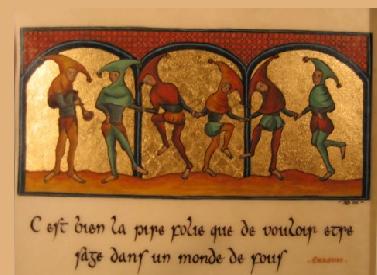 C est bien la pire folie que de vouloir etre
sage dans un monde de fous